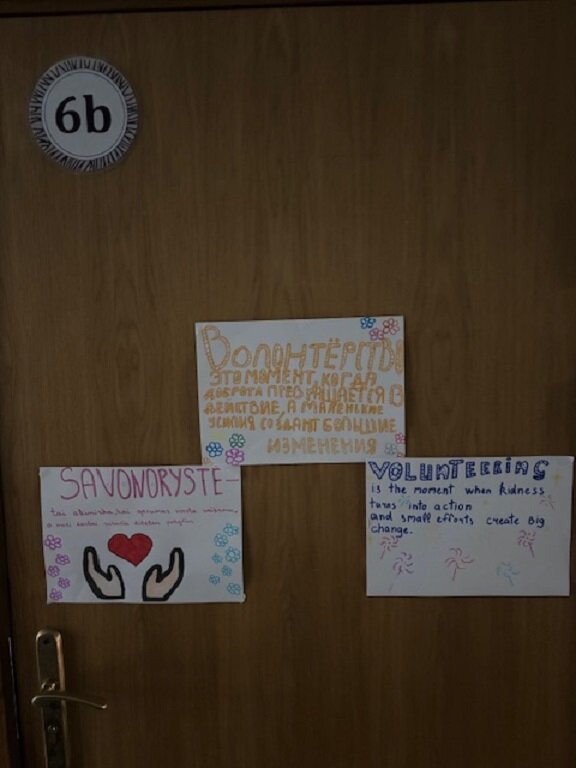 6b
ВОЛОНТЁРСТВО
ЭТО МОМЕНТ, КОГДА
ДОБРОТА ПРЕВРАЩАЕТСЯ В
ДЕЙСТВИЕ, А МАЛЕНЬКИЕ
УСИЛИЯ СОЗДАЮТ БОЛЬШИЕ
ИЗМЕНЕНИЯ
SAVONORYSTE-
tai akimirka, kai gerumas virsta veiksmu,
o maži darbai sukuria didelius pokyčius
VOLUNTEERING
is the moment when kidness
turns into action
and small efforts create Big
change.